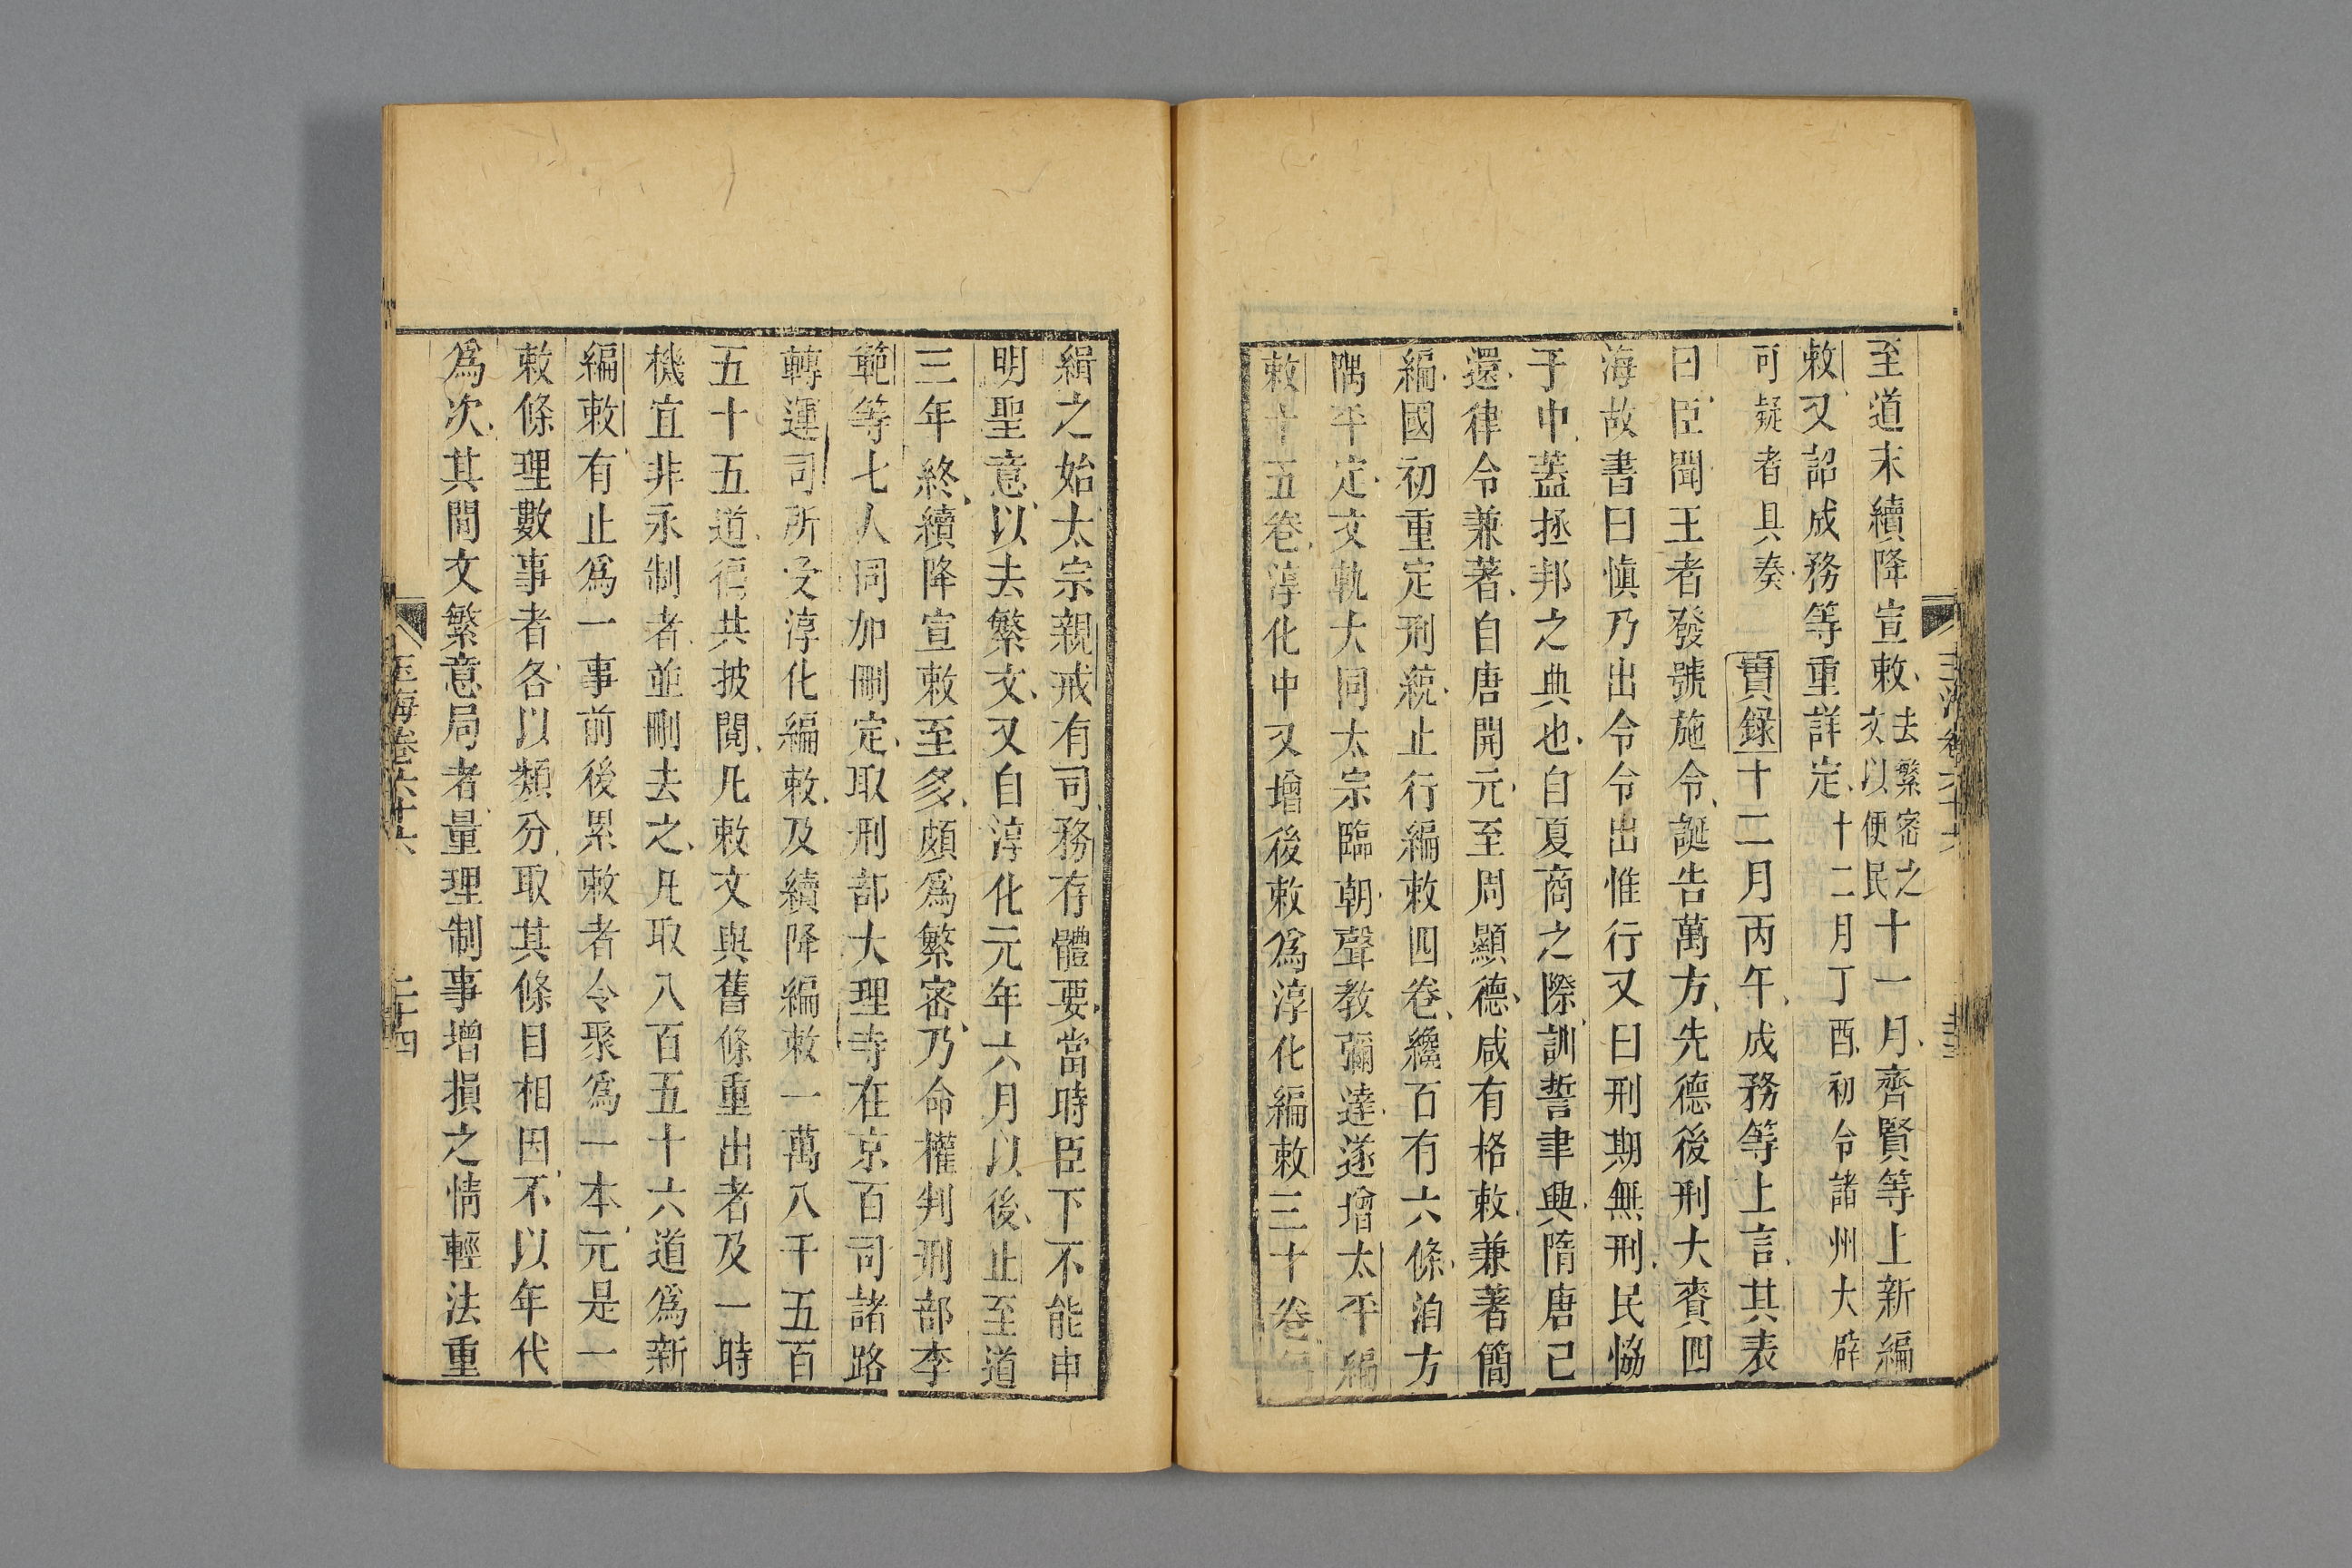 至道末續降宣敕去繁密之文以便民十一月齊賢等上新編
敕又詔成務等重詳定十二月丁酉初令諸州大辟
可疑者具奏實録十二月丙午成務等上言其表
曰臣聞王者發號施令誕告萬方先德後刑大賚四
海故書曰愼乃出令令出惟行又曰刑期無刑民恊
于中蓋拯邦之典也自夏商之際訓誓聿興隋唐已
還律令兼著自唐開元至周顯德咸有格敕兼著簡
編國初重定刑統止行編敕四卷纔百有六條洎方
隅平定文軌大同太宗臨朝聲教彌達遂增太平編
敕十五卷淳化中又增後敕爲淳化編敕三十卷
緝之始太宗親戒有司務存體要當時臣下不能申
明聖意以去繁文又自淳化元年六月以後止至道
三年終續降宣敕至多頗爲繁密乃命權判刑部李
範等七人同加刪定取刑部大理寺在京百司諸路
轉運司所受淳化編敕及續降編敕一萬八千五百
五十五道徧共披閱凡敕文與舊條重出者及一時
機宜非永制者並刪去之凡取八百五十六道爲新
編敕有止爲一事前後累敕者令聚爲一本元是一
敕條理數事者各以類分取其條目相因不以年代
爲次其間文繁意局者量理制事增損之情輕法重
玉海卷六十六
二十四